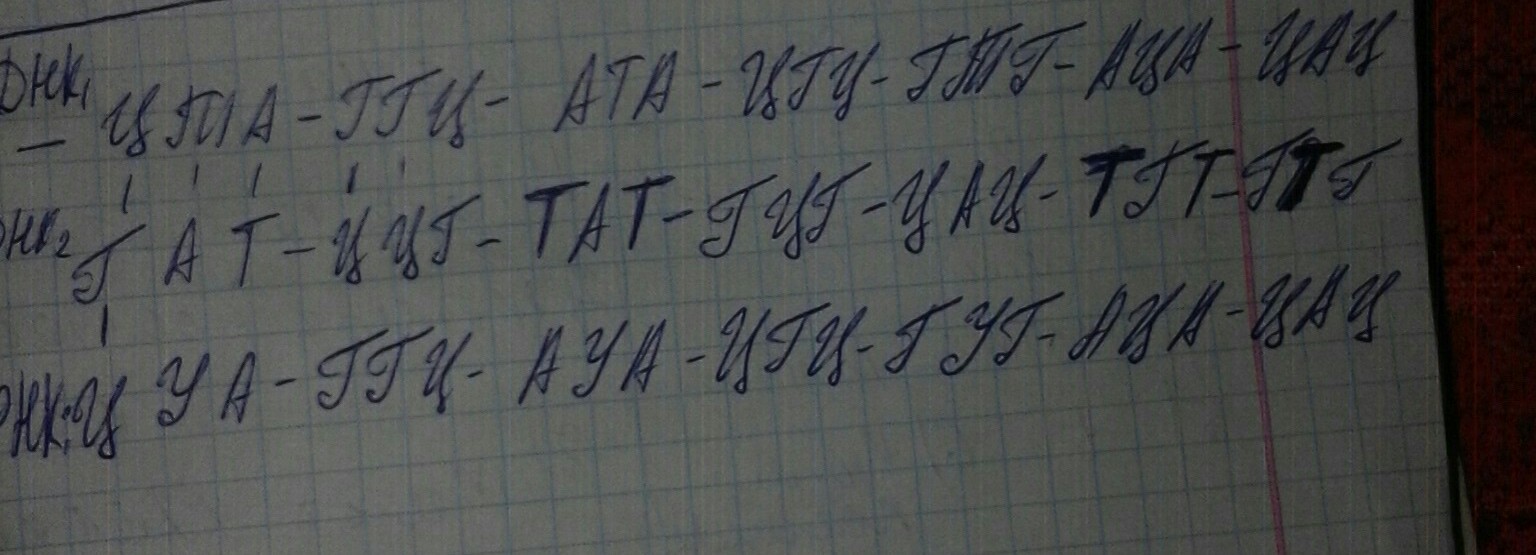 ДНК₁ ЦТА - ГГЦ - АТА - ЦГЦ - ГТГ - АЦА - ЦАЦ
ДНК₂ ГАТ - ЦЦГ - ТАТ - ГЦГ - ЦАЦ - ТГТ - ГТГ
РНК: ЦУА - ГГЦ - АУА - ЦГЦ - ГУГ - АЦА - ЦАЦ